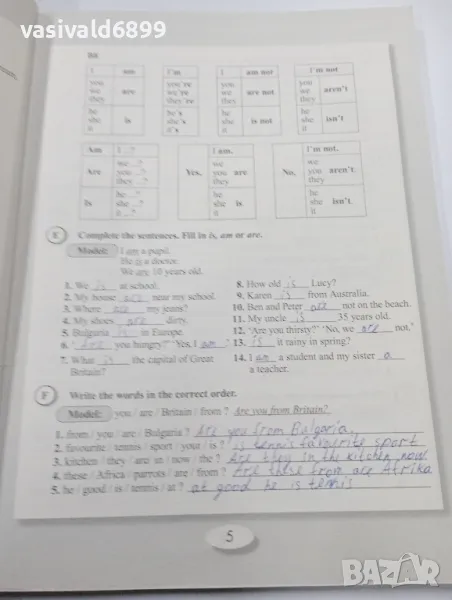 vasivald6899
BE
I am
you
we are
they
he
she is
it
I'm
you're
we're
they're
he's
she's
it's
I am not
you
we are not
they
he
she is not
it
I'm not
you
we aren't
they
he
she isn't
it
Am I ...?
Are we ...?
you ...?
they ...?
Is he ...?
she ...?
it ...?
Yes, I am.
we
you are
they
he
she is
it
No, I'm not.
we
you aren't
they
he
she isn't
it
E Complete the sentences. Fill in is, am or are.
Model: I am a pupil.
He is a doctor.
We are 10 years old.
1. We is at school.
2. My house are near my school.
3. Where are my jeans?
4. My shoes are dirty.
5. Bulgaria is in Europe.
6. 'Are you hungry?' 'Yes, I am.'
7. What is the capital of Great
Britain?
8. How old is Lucy?
9. Karen is from Australia.
10. Ben and Peter are not on the beach.
11. My uncle is 35 years old.
12. 'Are you thirsty?' 'No, we are not.'
13. is it rainy in spring?
14. I am a student and my sister a
a teacher.
F Write the words in the correct order.
Model: you / are / Britain / from ? Are you from Britain?
1. from / you / are / Bulgaria ? Are you from Bulgaria.
2. favourite / tennis / sport / your / is ? is tennis favourite sport
3. kitchen / they / are / in / now / the ? Are they in the kitchen now
4. these / Africa / parrots / are / from ? Are these from are Afrika
5. he / good / is / tennis / at ? at good he is tennis
5
BAZAR